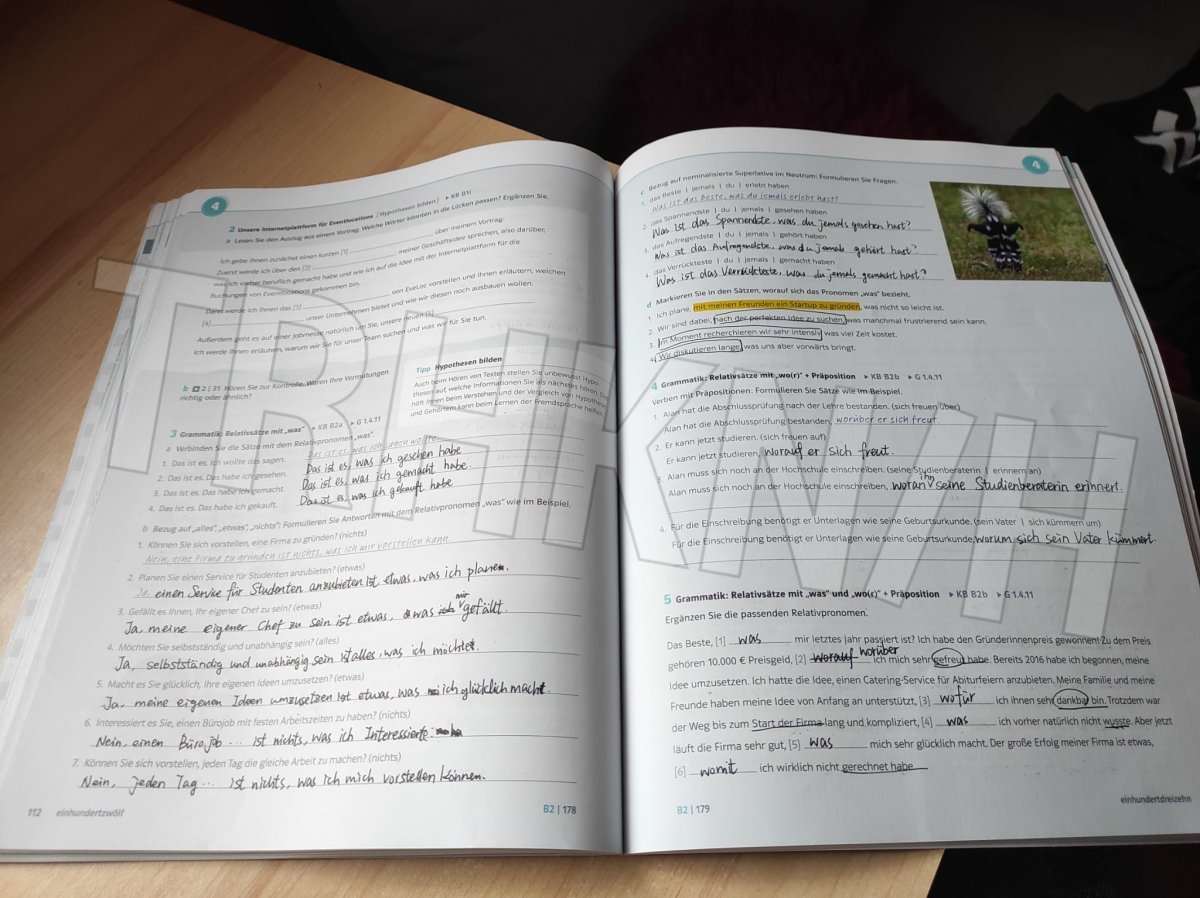 4
2 Unsere Internetplattform für Eventlocations (Hypothesen bilden) ▸ KB B1i
a Lesen Sie den Auszug aus einem Vortrag. Welche Wörter könnten in die Lücken passen? Ergänzen Sie.
Ich gebe Ihnen zunächst einen kurzen [1] über meinen Vortrag:
Zuerst werde ich über den [2] meiner Geschäftsidee sprechen, also darüber,
was ich vorher beruflich gemacht habe und wie ich auf die Idee mit der Internetplattform für die
Buchungen von Eventlocations gekommen bin.
Dann werde ich Ihnen das [3] von EveLoc vorstellen und Ihnen erläutern, welchen
[4] unser Unternehmen bietet und wie wir diesen noch ausbauen wollen.
Außerdem geht es auf einer Jobmesse natürlich um Sie, unsere neuen [5]
Ich werde Ihnen erläutern, warum wir Sie für unser Team suchen und was wir für Sie tun.
b 2 | 31 Hören Sie zur Kontrolle. Waren Ihre Vermutungen
richtig oder ähnlich?
Tipp Hypothesen bilden
Auch beim Hören von Texten stellen Sie unbewusst Hypo-
thesen auf, welche Informationen Sie als nächstes hören. Das
hilft Ihnen beim Verstehen und der Vergleich von Hypothese
und Gehörtem kann beim Lernen der Fremdsprache helfen.
3 Grammatik: Relativsätze mit „was“ ▸ KB B2a ▸ G 1.4.11
a Verbinden Sie die Sätze mit dem Relativpronomen „was“.
1. Das ist es. Ich wollte das sagen. Das ist es, was ich sagen wollte.
2. Das ist es. Das habe ich gesehen. Das ist es, was ich gesehen habe
3. Das ist es. Das habe ich gemacht. Das ist es, was ich gemacht habe.
4. Das ist es. Das habe ich gekauft. Das ist es, was ich gekauft habe
b Bezug auf „alles“, „etwas“, „nichts“: Formulieren Sie Antworten mit dem Relativpronomen „was“ wie im Beispiel.
1. Können Sie sich vorstellen, eine Firma zu gründen? (nichts)
Nein, eine Firma zu gründen ist nichts, was ich mir vorstellen kann.
2. Planen Sie einen Service für Studenten anzubieten? (etwas)
Ja, einen Service für Studenten anzubieten ist etwas, was ich planen.
3. Gefällt es Ihnen, Ihr eigener Chef zu sein? (etwas)
Ja, meine eigener Chef zu sein ist etwas, was mir gefällt.
4. Möchten Sie selbstständig und unabhängig sein? (alles)
Ja, selbstständig und unabhängig sein ist alles, was ich möchtet.
5. Macht es Sie glücklich, Ihre eigenen Ideen umzusetzen? (etwas)
Ja, meine eigenen Ideen umzusetzen ist etwas, was ich glücklich macht.
6. Interessiert es Sie, einen Bürojob mit festen Arbeitszeiten zu haben? (nichts)
Nein, einen Bürojob ... ist nichts, was ich Interessierte
7. Können Sie sich vorstellen, jeden Tag die gleiche Arbeit zu machen? (nichts)
Nein, jeden Tag ... ist nichts, was ich mich vorstellen können.
112 einhundertzwölf
B2 | 178
4
c Bezug auf nominalisierte Superlative im Neutrum: Formulieren Sie Fragen.
1. das Beste | jemals | du | erlebt haben
Was ist das Beste, was du jemals erlebt hast?
2. das Spannendste | du | jemals | gesehen haben
Was ist das Spannendste, was du jemals gesehen hast?
3. das Aufregendste | du | jemals | gehört haben
Was ist das Aufregendste, was du jemals gehört hast?
4. das Verrückteste | du | jemals | gemacht haben
Was ist das Verrückteste, was du jemals gemacht hast?
d Markieren Sie in den Sätzen, worauf sich das Pronomen „was“ bezieht.
1. Ich plane, mit meinen Freunden ein Startup zu gründen, was nicht so leicht ist.
2. Wir sind dabei, nach der perfekten Idee zu suchen, was manchmal frustrierend sein kann.
3. Im Moment recherchieren wir sehr intensiv, was viel Zeit kostet.
4. Wir diskutieren lange, was uns aber vorwärts bringt.
4 Grammatik: Relativsätze mit „wo(r)“ + Präposition ▸ KB B2b ▸ G 1.4.11
Verben mit Präpositionen: Formulieren Sie Sätze wie im Beispiel.
1. Alan hat die Abschlussprüfung nach der Lehre bestanden. (sich freuen über)
Alan hat die Abschlussprüfung bestanden, worüber er sich freut.
2. Er kann jetzt studieren. (sich freuen auf)
Er kann jetzt studieren, worauf er sich freut.
3. Alan muss sich noch an der Hochschule einschreiben. (seine Studienberaterin | erinnern an)
Alan muss sich noch an der Hochschule einschreiben, woran ihn seine Studienberaterin erinnert.
4. Für die Einschreibung benötigt er Unterlagen wie seine Geburtsurkunde. (sein Vater | sich kümmern um)
Für die Einschreibung benötigt er Unterlagen wie seine Geburtsurkunde, worum sich sein Vater kümmert.
5 Grammatik: Relativsätze mit „was“ und „wo(r)“ + Präposition ▸ KB B2b ▸ G 1.4.11
Ergänzen Sie die passenden Relativpronomen.
Das Beste, [1] was mir letztes Jahr passiert ist? Ich habe den Gründerinnenpreis gewonnen! Zu dem Preis
gehören 10.000 € Preisgeld, [2] worauf worüber ich mich sehr gefreut habe. Bereits 2016 habe ich begonnen, meine
Idee umzusetzen. Ich hatte die Idee, einen Catering-Service für Abiturfeiern anzubieten. Meine Familie und meine
Freunde haben meine Idee von Anfang an unterstützt, [3] wofür ich ihnen sehr dankbar bin. Trotzdem war
der Weg bis zum Start der Firma lang und kompliziert, [4] was ich vorher natürlich nicht wusste. Aber jetzt
läuft die Firma sehr gut, [5] was mich sehr glücklich macht. Der große Erfolg meiner Firma ist etwas,
[6] womit ich wirklich nicht gerechnet habe
B2 | 179
einhundertdreizehn